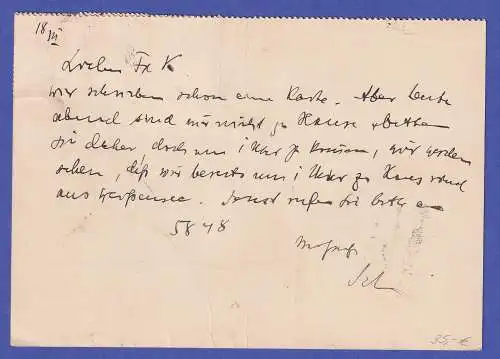 18/VII
Fr K
wir schrieben schon eine Karte. Aber heute
abend sind wir nicht zu Hause + bitten
Sie daher doch um 1 Uhr zu kommen, wir werden
sehen, daß wir bereits um 1 Uhr zu Haus sind
aus Weißensee. Sonst rufen Sie bitte an
5848
35,-€